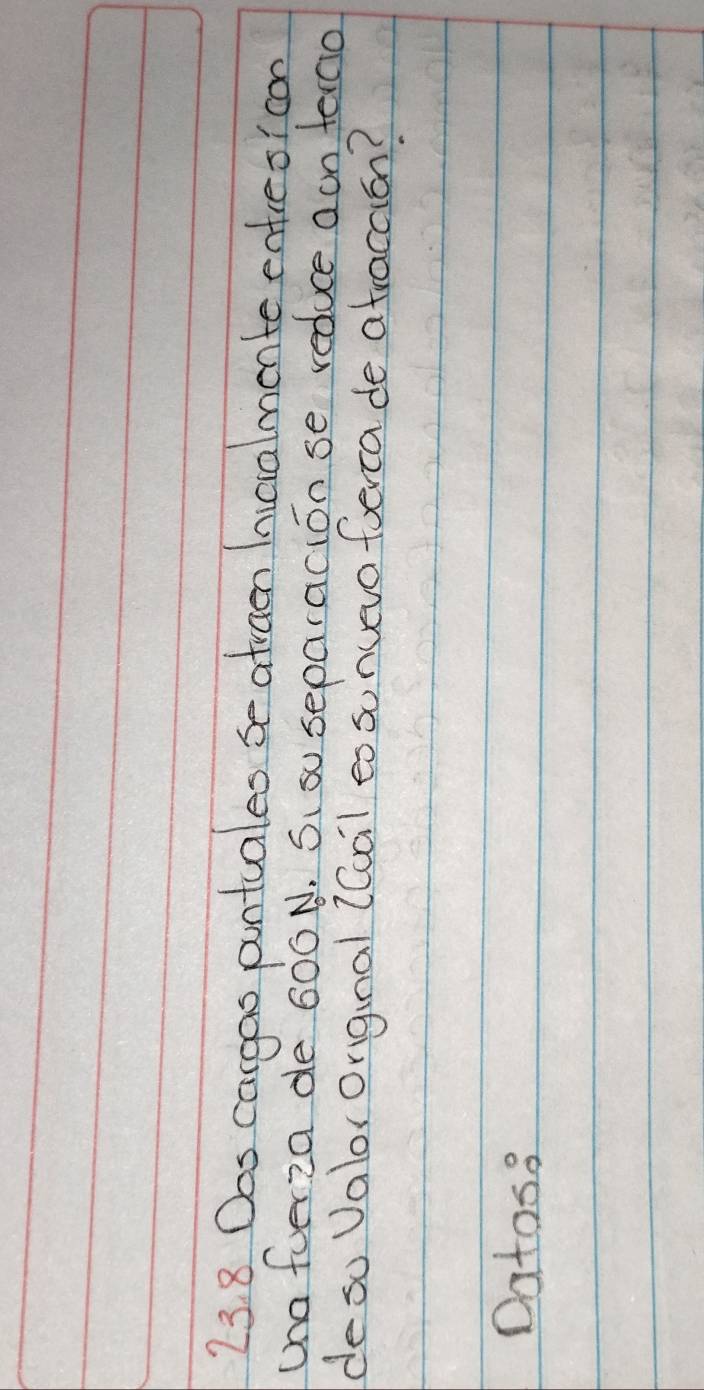 23.8 Dos cargas puntuales se atraen Inicialmente entre sí con
una fuerza de 600 N. Si su separación se reduce a un tercio
de su Valor Original ¿Cuál es su nueva fuerza de atracción?
Datos: